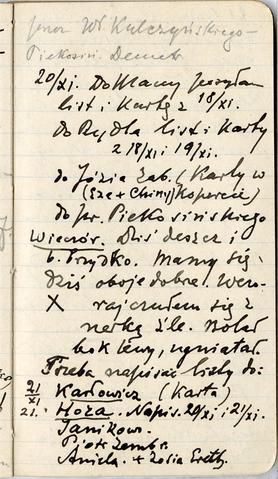 Wł. Kulczyńskiego –
Demetr
20/XI. Do Mamy posyłam
list i kartę z 18/XI.
do Rydla list i karty
z 18/XI i 19/XI.
do Józia Zab. (Karty w
(Eze + Chiny) Kopercie)
do pr. Piekosińskiego
Wieczór. Dziś deszcz i
b. brzydko. Mamy się
dziś oboje dobrze. Wczo-
X raj czułem się z
nerką źle. Bolał
bok lewy, ugniatał.
Trzeba napisać listy do:
21/XI Karłowicz (Karta)
21. Hoża. Napis. 20/XI i 21/XI.
Janikow.
Piotr Zembr.
Aniela. + Zosia